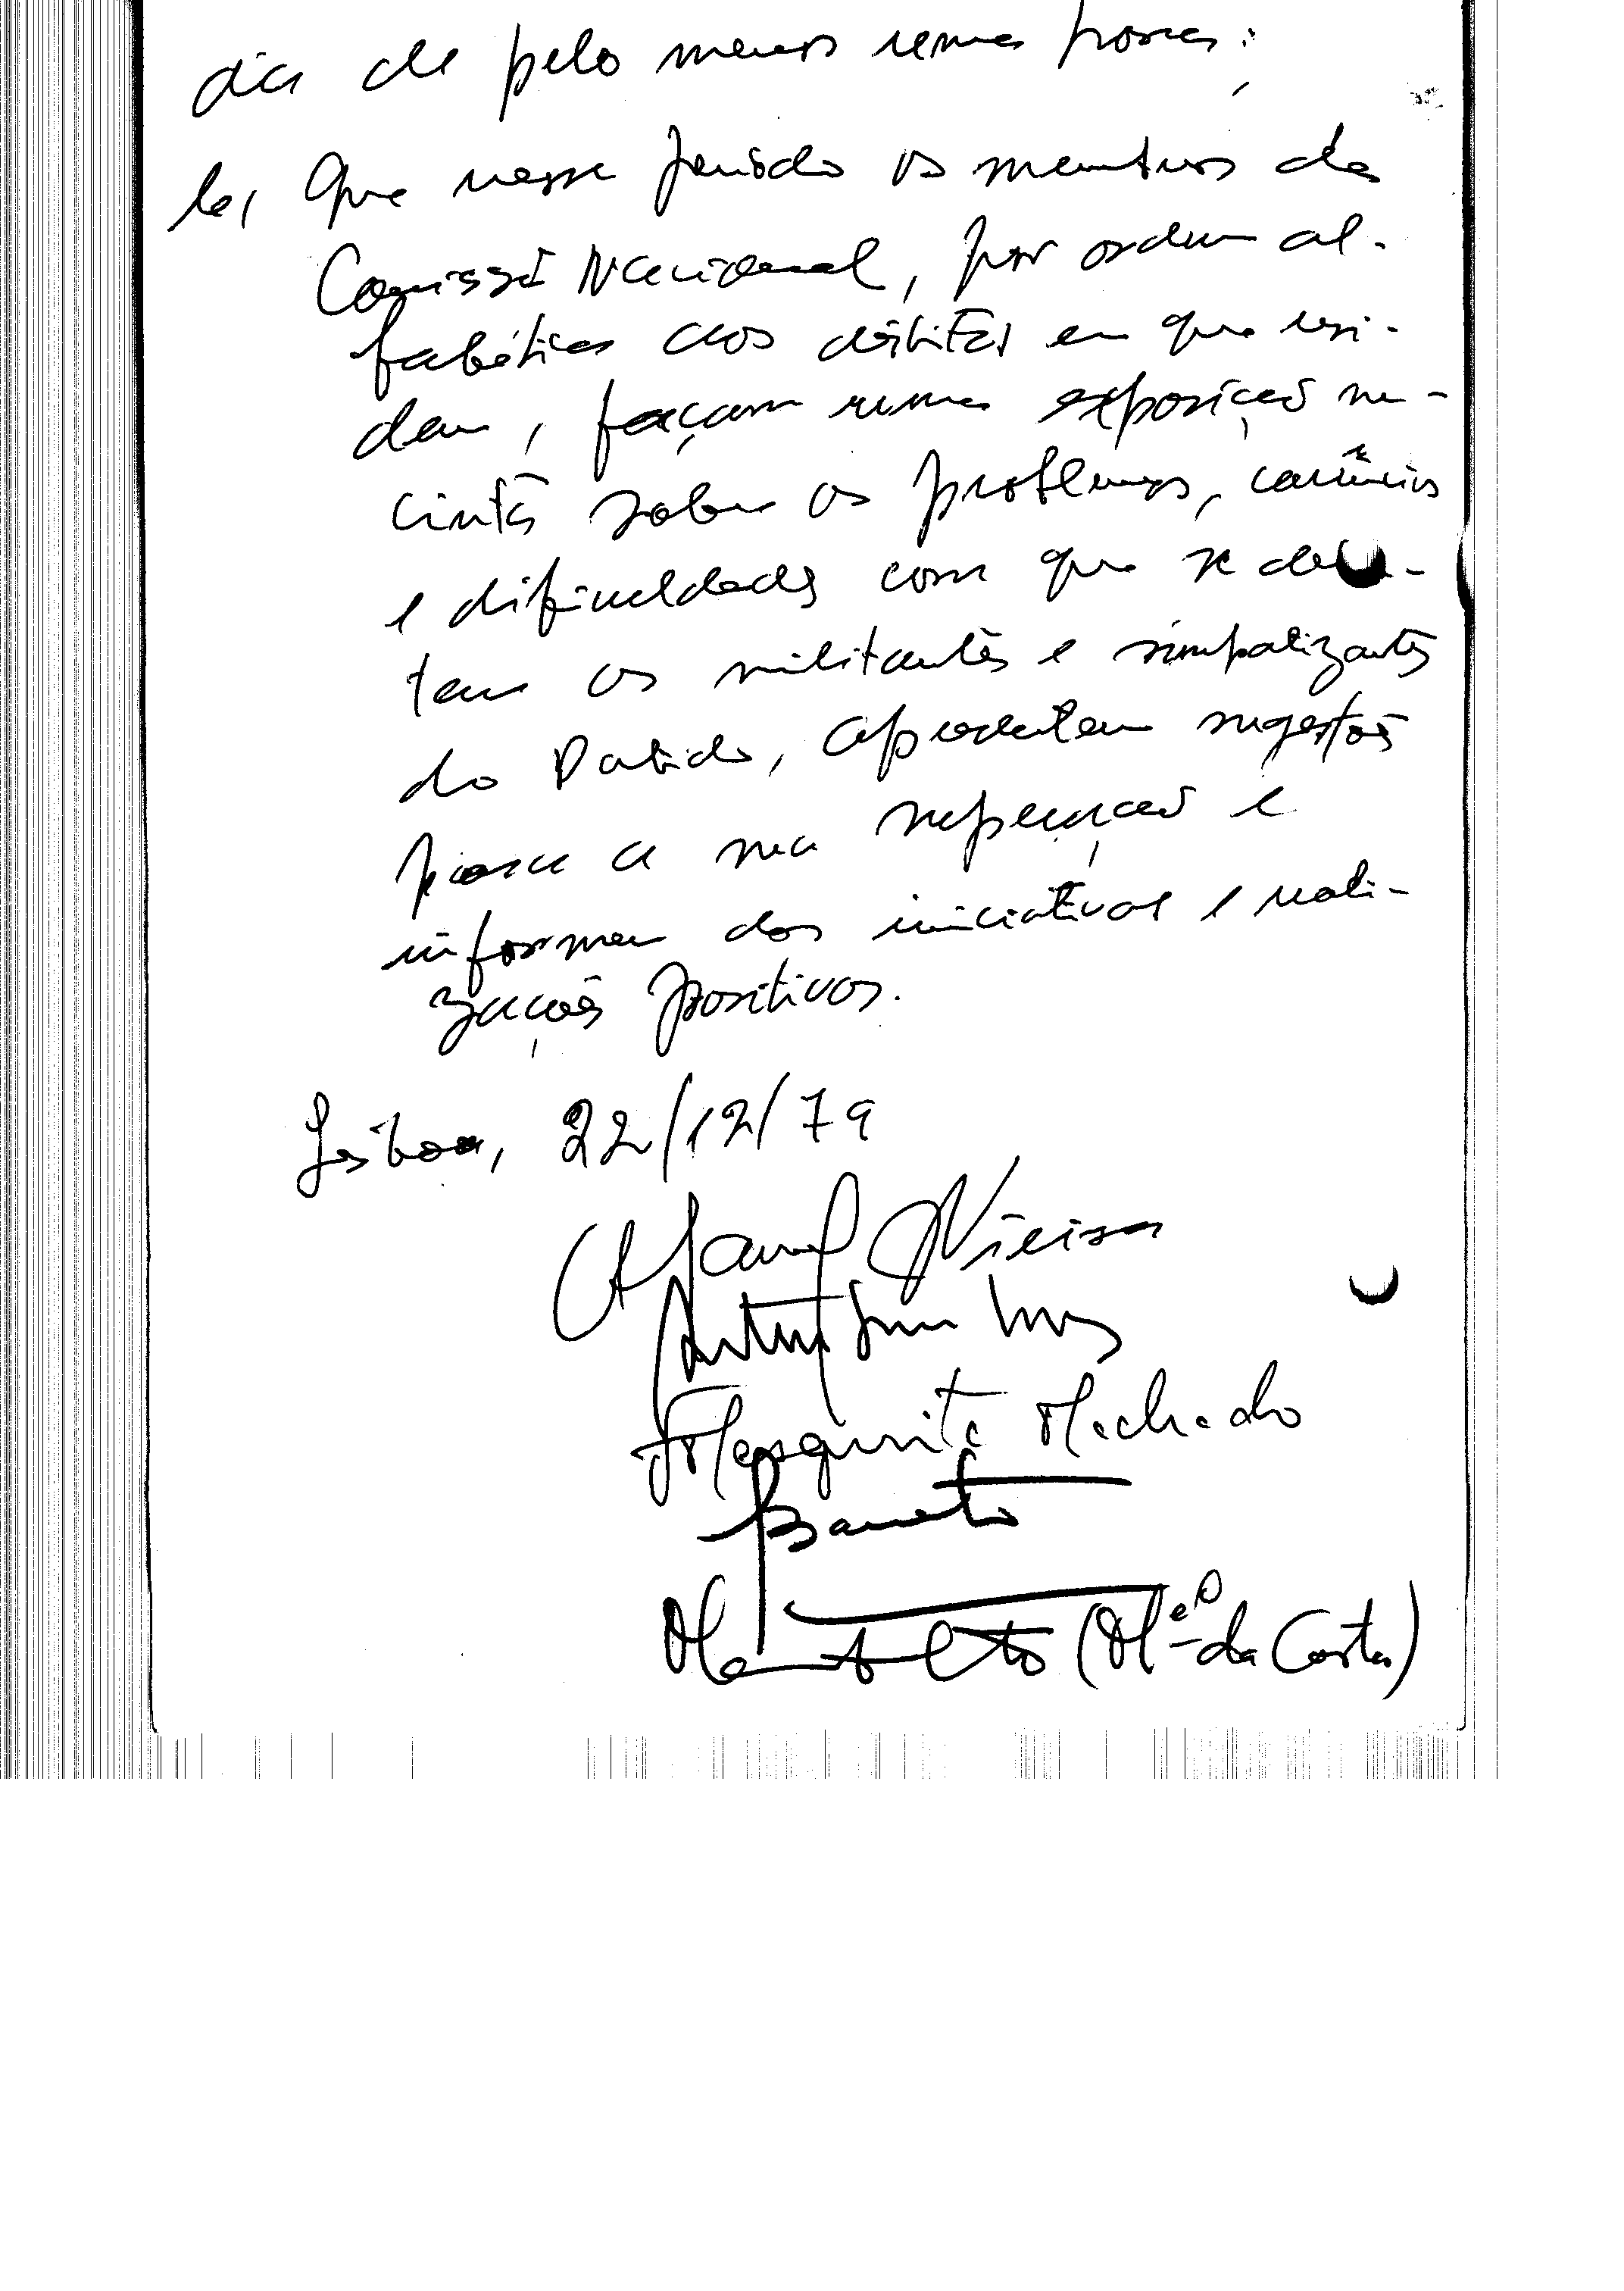 dia de pelo menos uma hora;
b, Que nesse período os membros da
Comissão Nacional, por ordem al-
fabética dos distritos em que resi-
dem, façam uma exposição su-
cinta sobre os problemas, carências
e dificuldades com que se deba-
tem os militantes e simpatizantes
do Partido, apresentem sugestões
para a sua superação e
informem das iniciativas e reali-
zações positivas.
Lisboa, 22/12/79
Vieira
Artur
Mesquita Machado
Barreto
(M.el da Costa)